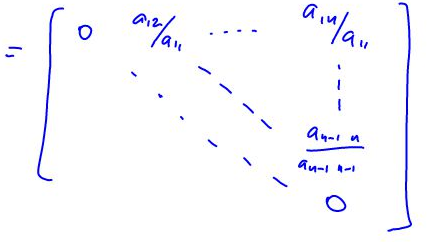 = [ 0 a₁₂/a₁₁ ···· a₁ₙ/a₁₁
aₙ₋₁ ₙ / aₙ₋₁ ₙ₋₁
0 ]